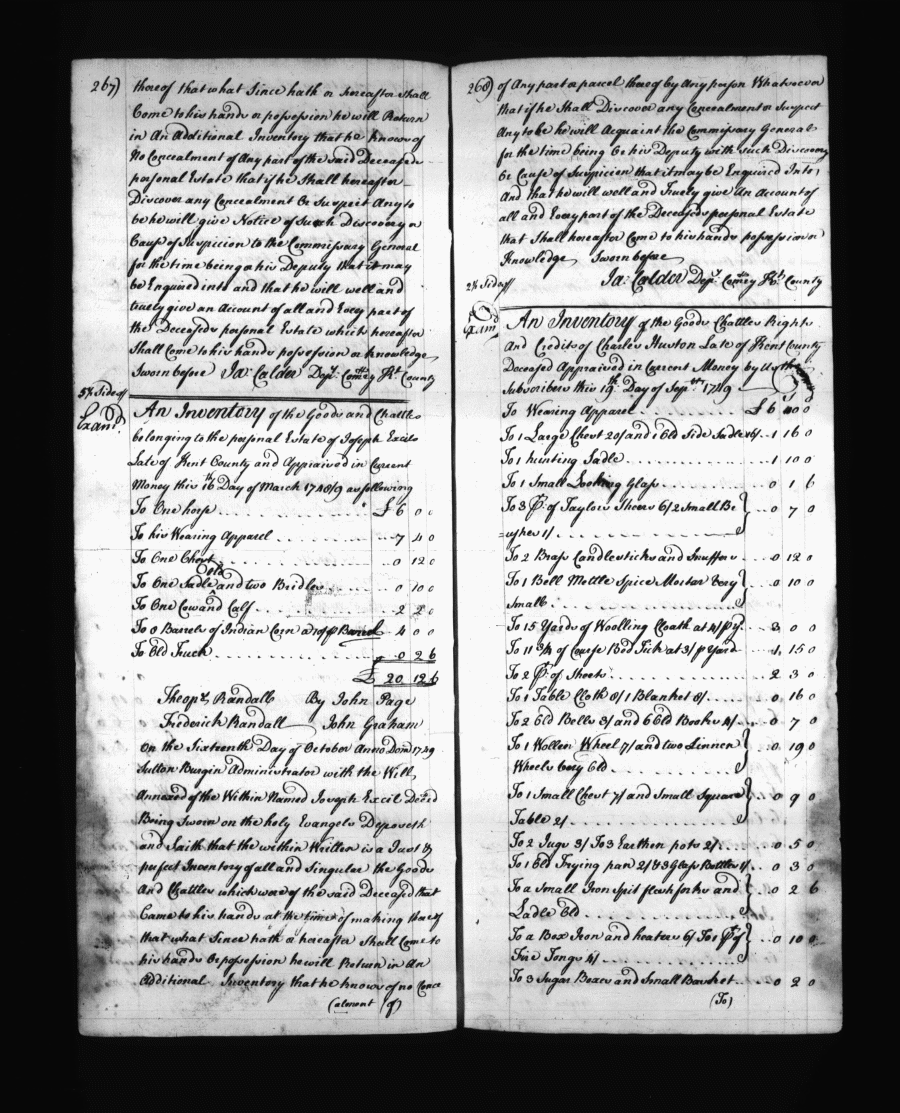 267)
thereof that what Since hath or hereafter Shall
Come to his hands or possession he will Return
in An Additional Inventory that he knows of
No Concealment of Any part of the said Deceaseds
personal Estate that if he Shall hereafter
Discover any Concealment Or Suspect Any to
be he will give Notice of Such Discovery or
Cause of Suspicion to the Commissary General
for the time being or his Deputy that it may
be Enquired into and that he will well and
truely give an Account of all and Every part of
the Deceaseds personal Estate which hereafter
Shall Come to his hands possession or knowledge
Sworn before Ja: Calder Depy. Comry Kt County
5½ Sides
Exam.d
An Inventory of the Goods and Chattles
belonging to the personal Estate of Joseph Excile
Late of Kent County and Appraised in Current
Money this 16th Day of March 1748/9 as following
To One horse £ 6 0 0
To his Wearing Apparel 7 4 0
To One Chest 0 12 0
To One Old Sadle and two Bridles 0 10 0
To One Cow and Calf 2 2 0
To 8 Barrels of Indian Corn a 10/ p Barrel 4 0 0
To Old Truck 0 2 6
£ 20 12 6
Theops. Randall By John Page
Frederick Randall John Graham
On the Sixteenth Day of October Anno Dom 1749
Sutton Burgin Administrator with the Will
Annexed of the Within Named Joseph Excil Deced
Being Sworn on the holy Evangels Deposeth
and Saith that the within Written is a Just &
perfect Inventory of all and Singular the Goods
And Chattles which were of the said Deceased that
Came to his hands at the time of making thereof
that what Since hath or hereafter Shall Come to
his hands Or possession he will Return in An
Additional Inventory that he knows of no Conce
(alment of)
268)
of Any part or parcel thereof by Any person Whatsoever
that if he Shall Discover any Concealment or Suspect
Any to be he will Acquaint the Commissary General
for the time being or his Deputy with such Discovery
or Cause of Suspicion that it may be Enquired Into,
And that he will well and Truely give An Account of
all and Every part of the Deceaseds personal Estate
that Shall hereafter Come to his hands possession or
Knowledge Sworn before
2½ Sides
Ja: Calder Depy. Comry Kt. County
Exam.d
An Inventory of the Goods Chattles Rights
And Credits of Charles Huston Late of Kent County
Deceased Appraised in Current Money by Us the
Subscribers this 19th. Day of Sepr. 1749
To Wearing Apparel £ 6 0 0
To 1 Large Chest 20/ and 1 Old Side Sadle 16/ 1 16 0
To 1 hunting Sadle 1 10 0
To 1 Small Looking Glass 0 1 6
To 3 pr. of Taylors Sheers 6/ 2 Small Br
ushes 1/ 0 7 0
To 2 Brass Candlesticks and Snuffers 0 12 0
To 1 Bell Mettle Spice Mortar Very
Small 0 10 0
To 15 Yards of Woolling Cloath at 4/ p Yd. 3 0 0
To 11¾ of Course Bed Tick at 3/ p Yard 1 15 0
To 2 pr. of Sheets 2 3 0
To 1 Table Cloth 8/ 1 Blanket 8/ 0 16 0
To 2 Old Bells 3/ and 6 Old Books 4/ 0 7 0
To 1 Wollen Wheel 7/ and two Linnen
Wheels Very Old 0 19 0
To 1 Small Chest 7/ and Small Square
Table 2/ 0 9 0
To 2 Jugs 3/ To 3 Earthen pots 2/ 0 5 0
To 1 Old Frying pan 2/ & 3 Glass Bottles 1/ 0 3 0
To a Small Iron Spit flesh forks and
Ladle Old 0 2 6
To a Box Iron and heaters 6/ To 1 pr. of
Fire Tongs 4/ 0 10 0
To 3 Sugar Boxes and Small Basket 0 2 0
(To)